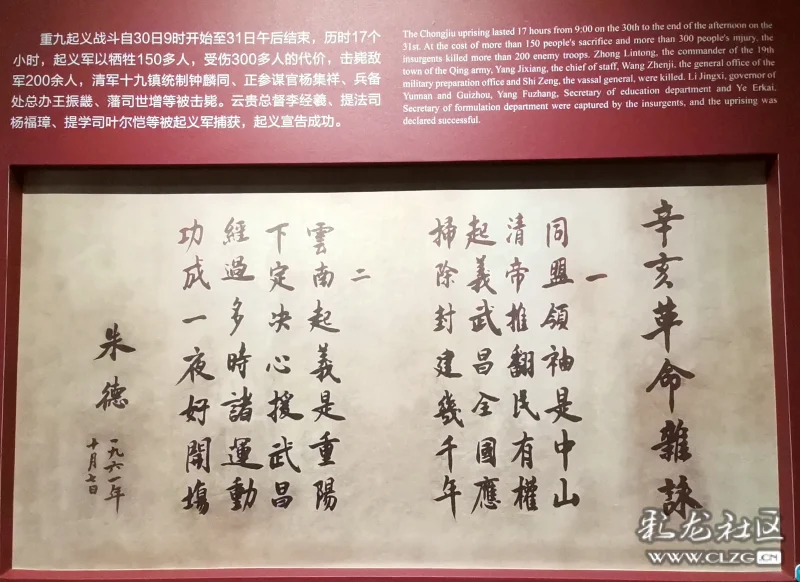 重九起义战斗自30日9时开始至31日午后结束，历时17个
小时，起义军以牺牲150多人，受伤300多人的代价，击毙敌
军200余人，清军十九镇统制钟麟同、正参谋官杨集祥、兵备
处总办王振畿、藩司世增等被击毙。云贵总督李经羲、提法司
杨福璋、提学司叶尔恺等被起义军捕获，起义宣告成功。
The Chongjiu uprising lasted 17 hours from 9:00 on the 30th to the end of the afternoon on the
31st. At the cost of more than 150 people's sacrifice and more than 300 people's injury, the
insurgents killed more than 200 enemy troops. Zhong Lintong, the commander of the 19th
town of the Qing army, Yang Jixiang, the chief of staff, Wang Zhenji, the general office of the
military preparation office and Shi Zeng, the vassal general, were killed. Li Jingxi, governor of
Yunnan and Guizhou, Yang Fuzhang, Secretary of education department and Ye Erkai,
Secretary of formulation department were captured by the insurgents, and the uprising was
declared successful.
辛亥革命雜詠
一
同盟領袖是中山
清帝推翻民有權
起義武昌全國應
掃除封建幾千年
二
雲南起義是重陽
下定決心援武昌
經過多時諸運動
功成一夜好開場
朱德
一九六一年
十月七日
彩龙社区
WWW.CLZG.CN